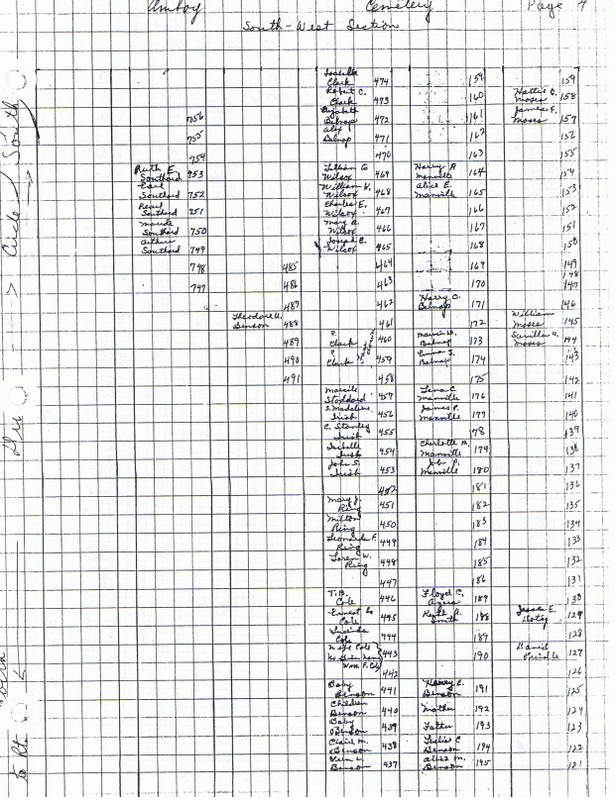 Amboy Cemetery Page 4
South-West Section
474 159 159
Clark
Robert C.
Clark 473 160 Hattie C.
Moses 158
Elizabeth
Belnap 472 161 James E.
Moses 157
756
Alex
Belnap 471 162 156
755
470 163 155
754
Ruth E.
Southard 753 Lillian G.
Wilcox 469 Harry A.
Manville 164 154
Earl
Southard 752 William V.
Wilcox 468 Alice E.
Manville 165 153
Pearl
Southard 751 Charles E.
Wilcox 467 166 152
Maude
Southard 750 Mary A.
Wilcox 466 167 151
Arthur
Southard 749 Joseph C.
Wilcox 465 168 150
748 485 464 169 149
148
747 486 463 170 147
487 462 Harry C.
Belnap 171 146
Theodore
Benson 488 461 172 William
Moses 145
489 ?
Clark 460 Belnap 173 Moses 144
490 ?
Clark 459 Emma J.
Belnap 174 143
491 458 175 142
Stoddard 457 Lena C.
Manville 176 141
S. Madeline
Irish 456 James P.
Manville 177 140
C. Stanley
Irish 455 178 139
Irish 454 Charlotte M.
Manville 179 138
John S.
Irish 453 John P.
Manville 180 137
452 181 136
Mary J.
Ring 451 182 135
Milton
Ring 450 183 134
Leonard F.
Ring 449 184 133
Loren W.
Ring 448 185 132
447 186 131
T.B.
Cole 446 Floyd C.
187 130
Ernest
Cole 445 Ruth A.
Smith 188 Jesse E.
Doty 129
Lucinda
Cole 444 189 128
Wife Cole
443 190 David
127
Wm P. Cole
442 126
Baby
Benson 441 Harry E.
Benson 191 125
Children
Benson 440 Mother 192 124
Baby
Benson 439 Father 193 123
Clair M.
Benson 438 Leslie C.
Benson 194 122
Benson 437 Alice M.
Benson 195 121
Circle
South
to Rt.